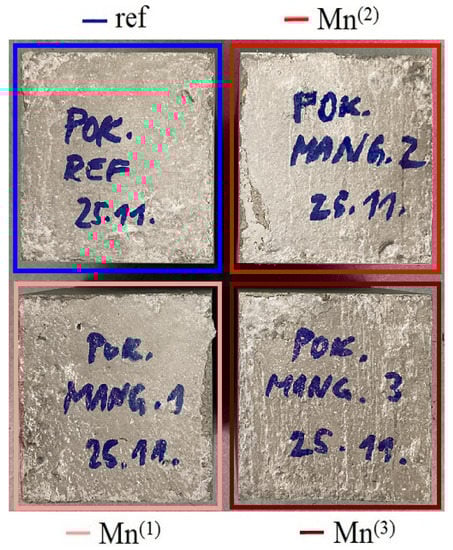 ref
Mn(2)
POK.
REF
25.11.
POK.
MANG.2
25.11.
POK.
MANG.1
25.11.
POK.
MANG. 3
25.11.
Mn(1)
Mn(3)